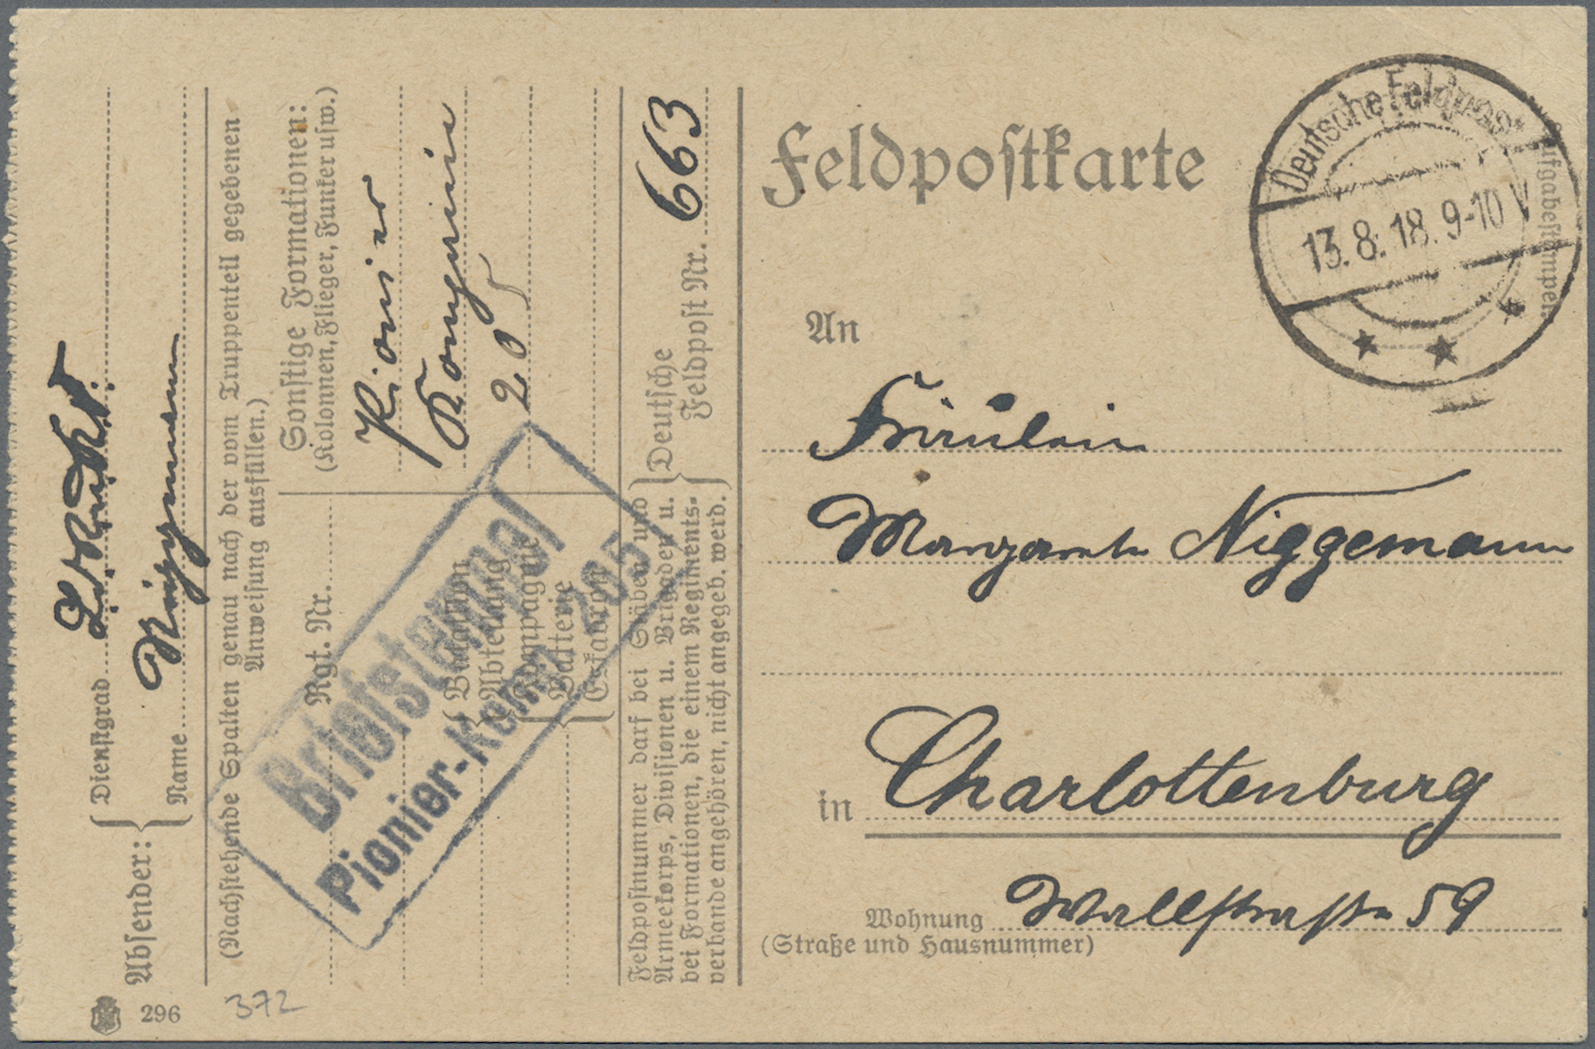 Feldpostkarte
Deutsche Feldpost
13.8.18. 9-10 V
Aufgabestempel
An
Fräulein
Margarete Niggemann
in Charlottenburg
Wohnung Wallstraße 59
(Straße und Hausnummer)
Absender:
Dienstgrad
Name
(Nachstehende Spalten genau nach der vom Truppenteil gegebenen
Anweisung ausfüllen.)
Sonstige Formationen:
(Kolonnen, Flieger, Funker usw.)
Pionier
Kompanie
205
Rgt. Nr.
Bataillon
Abteilung
Kompagnie
Batterie
Eskadron
Briefstempel
Pionier-Komp. 205
Feldpostnummer darf bei Stäben und
Armeekorps, Divisionen u. Brigaden u.
bei Formationen, die einem Regiments-
verbande angehören, nicht angegeb. werd.
Deutsche
Feldpost Nr. 663
296
372